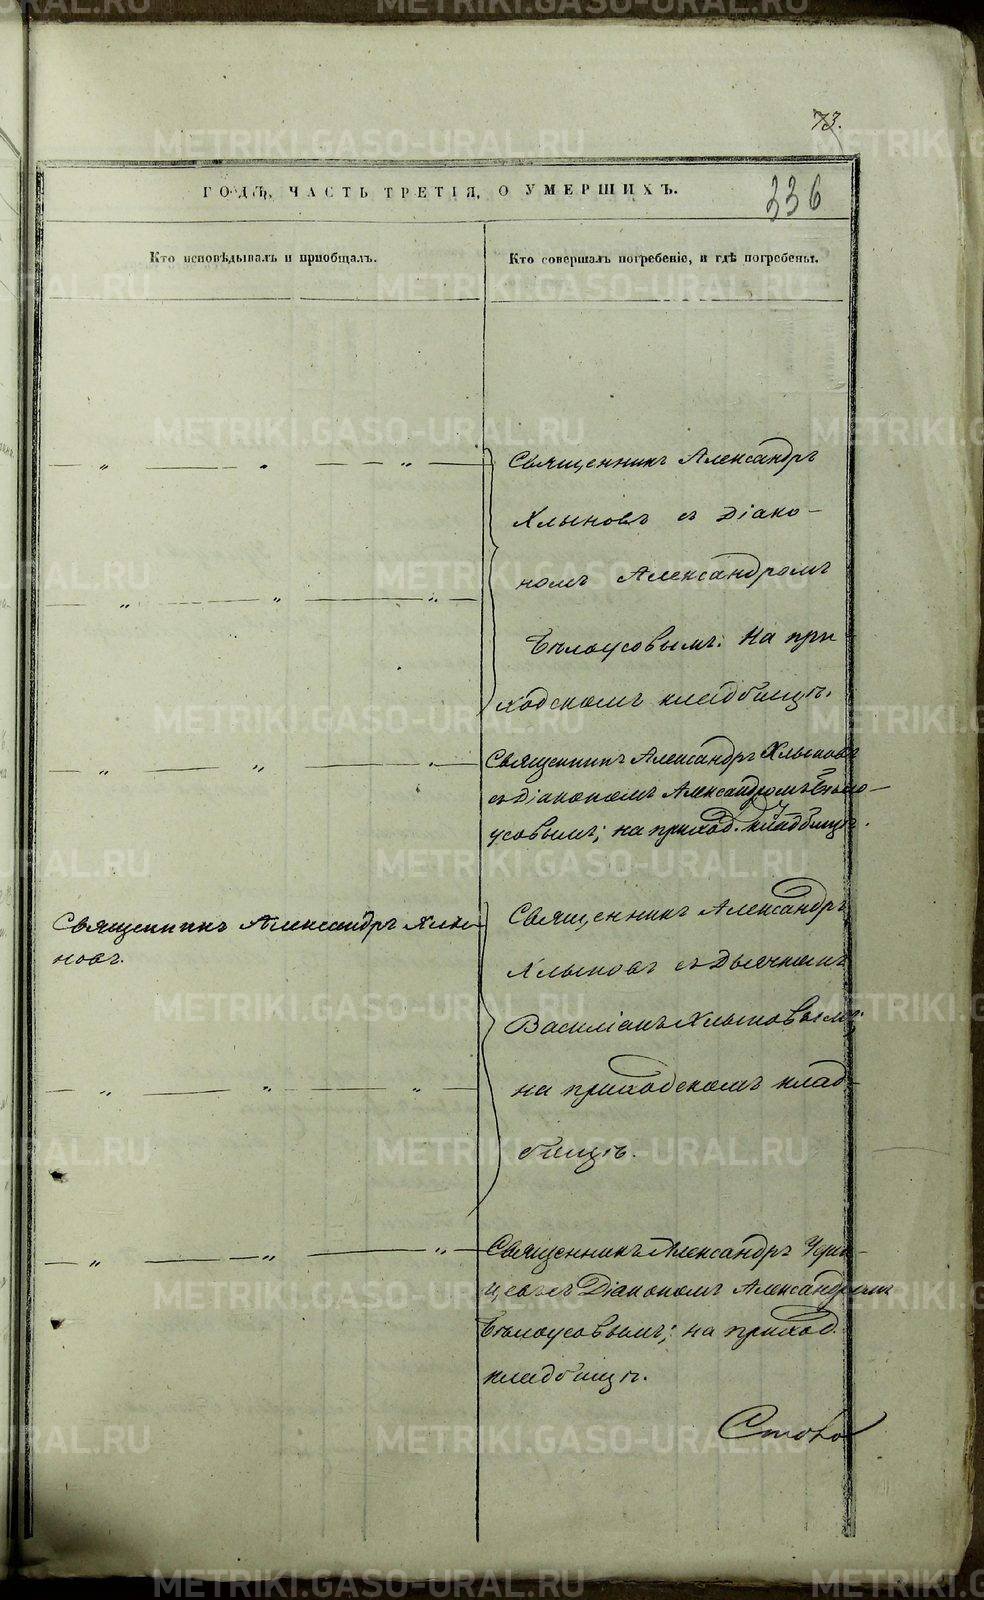 73.
ГОДЪ, ЧАСТЬ ТРЕТІЯ, О УМЕРШИХЪ.
336
Кто исповѣдывалъ и пріобщалъ.
Кто совершалъ погребеніе, и гдѣ погребены.
Священникъ Александръ
Хлыновъ съ Діако-
номъ Александромъ
Бѣлоусовымъ: На при
ходскомъ кладбищѣ.
Священникъ Александръ Хлыновъ
съ Діакономъ Александромъ Бѣло-
усовымъ; на приход. кладбищѣ.
Священникъ Александръ Хлы-
новъ.
Священникъ Александръ
Хлыновъ съ Дьячкомъ
Василіемъ Хлыновымъ;
на приходскомъ клад-
бищѣ.
Священникъ Александръ
Діакономъ Александромъ
Бѣлоусовымъ; на приход.
кладбищѣ.
METRIKI.GASO-URAL.RU